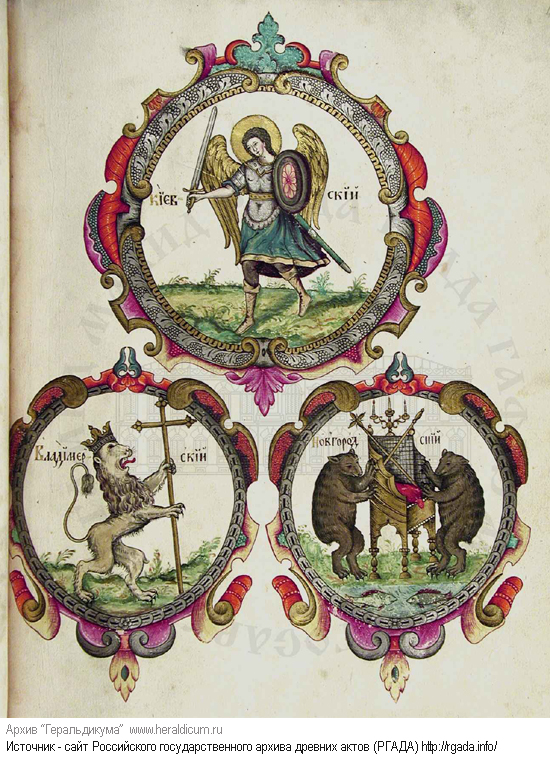 Кїев скїй
Владїмер скїй
Новъгород скїй
Архив "Геральдикума" www.heraldicum.ru
Источник - сайт Российского государственного архива древних актов (РГАДА) http://rgada.info/